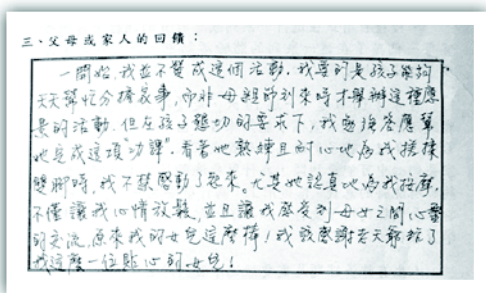 三、父母或家人的回饋：
一開始，我並不贊成這個活動，我要的是孩子能夠
天天幫忙分擔家事，而非母親節到來時才舉辦這種應
景的活動。但在孩子懇切的要求下，我勉強答應幫
她完成這項"功課"。看著她熟練且耐心地為我搓揉
雙腳時，我不禁感動了起來。尤其她認真地為我按摩，
不僅讓我心情放鬆，並且讓我感受到母女之間心靈
的交流，原來我的女兒這麼棒！我該感謝老天爺給了
我這麼一位貼心的女兒！